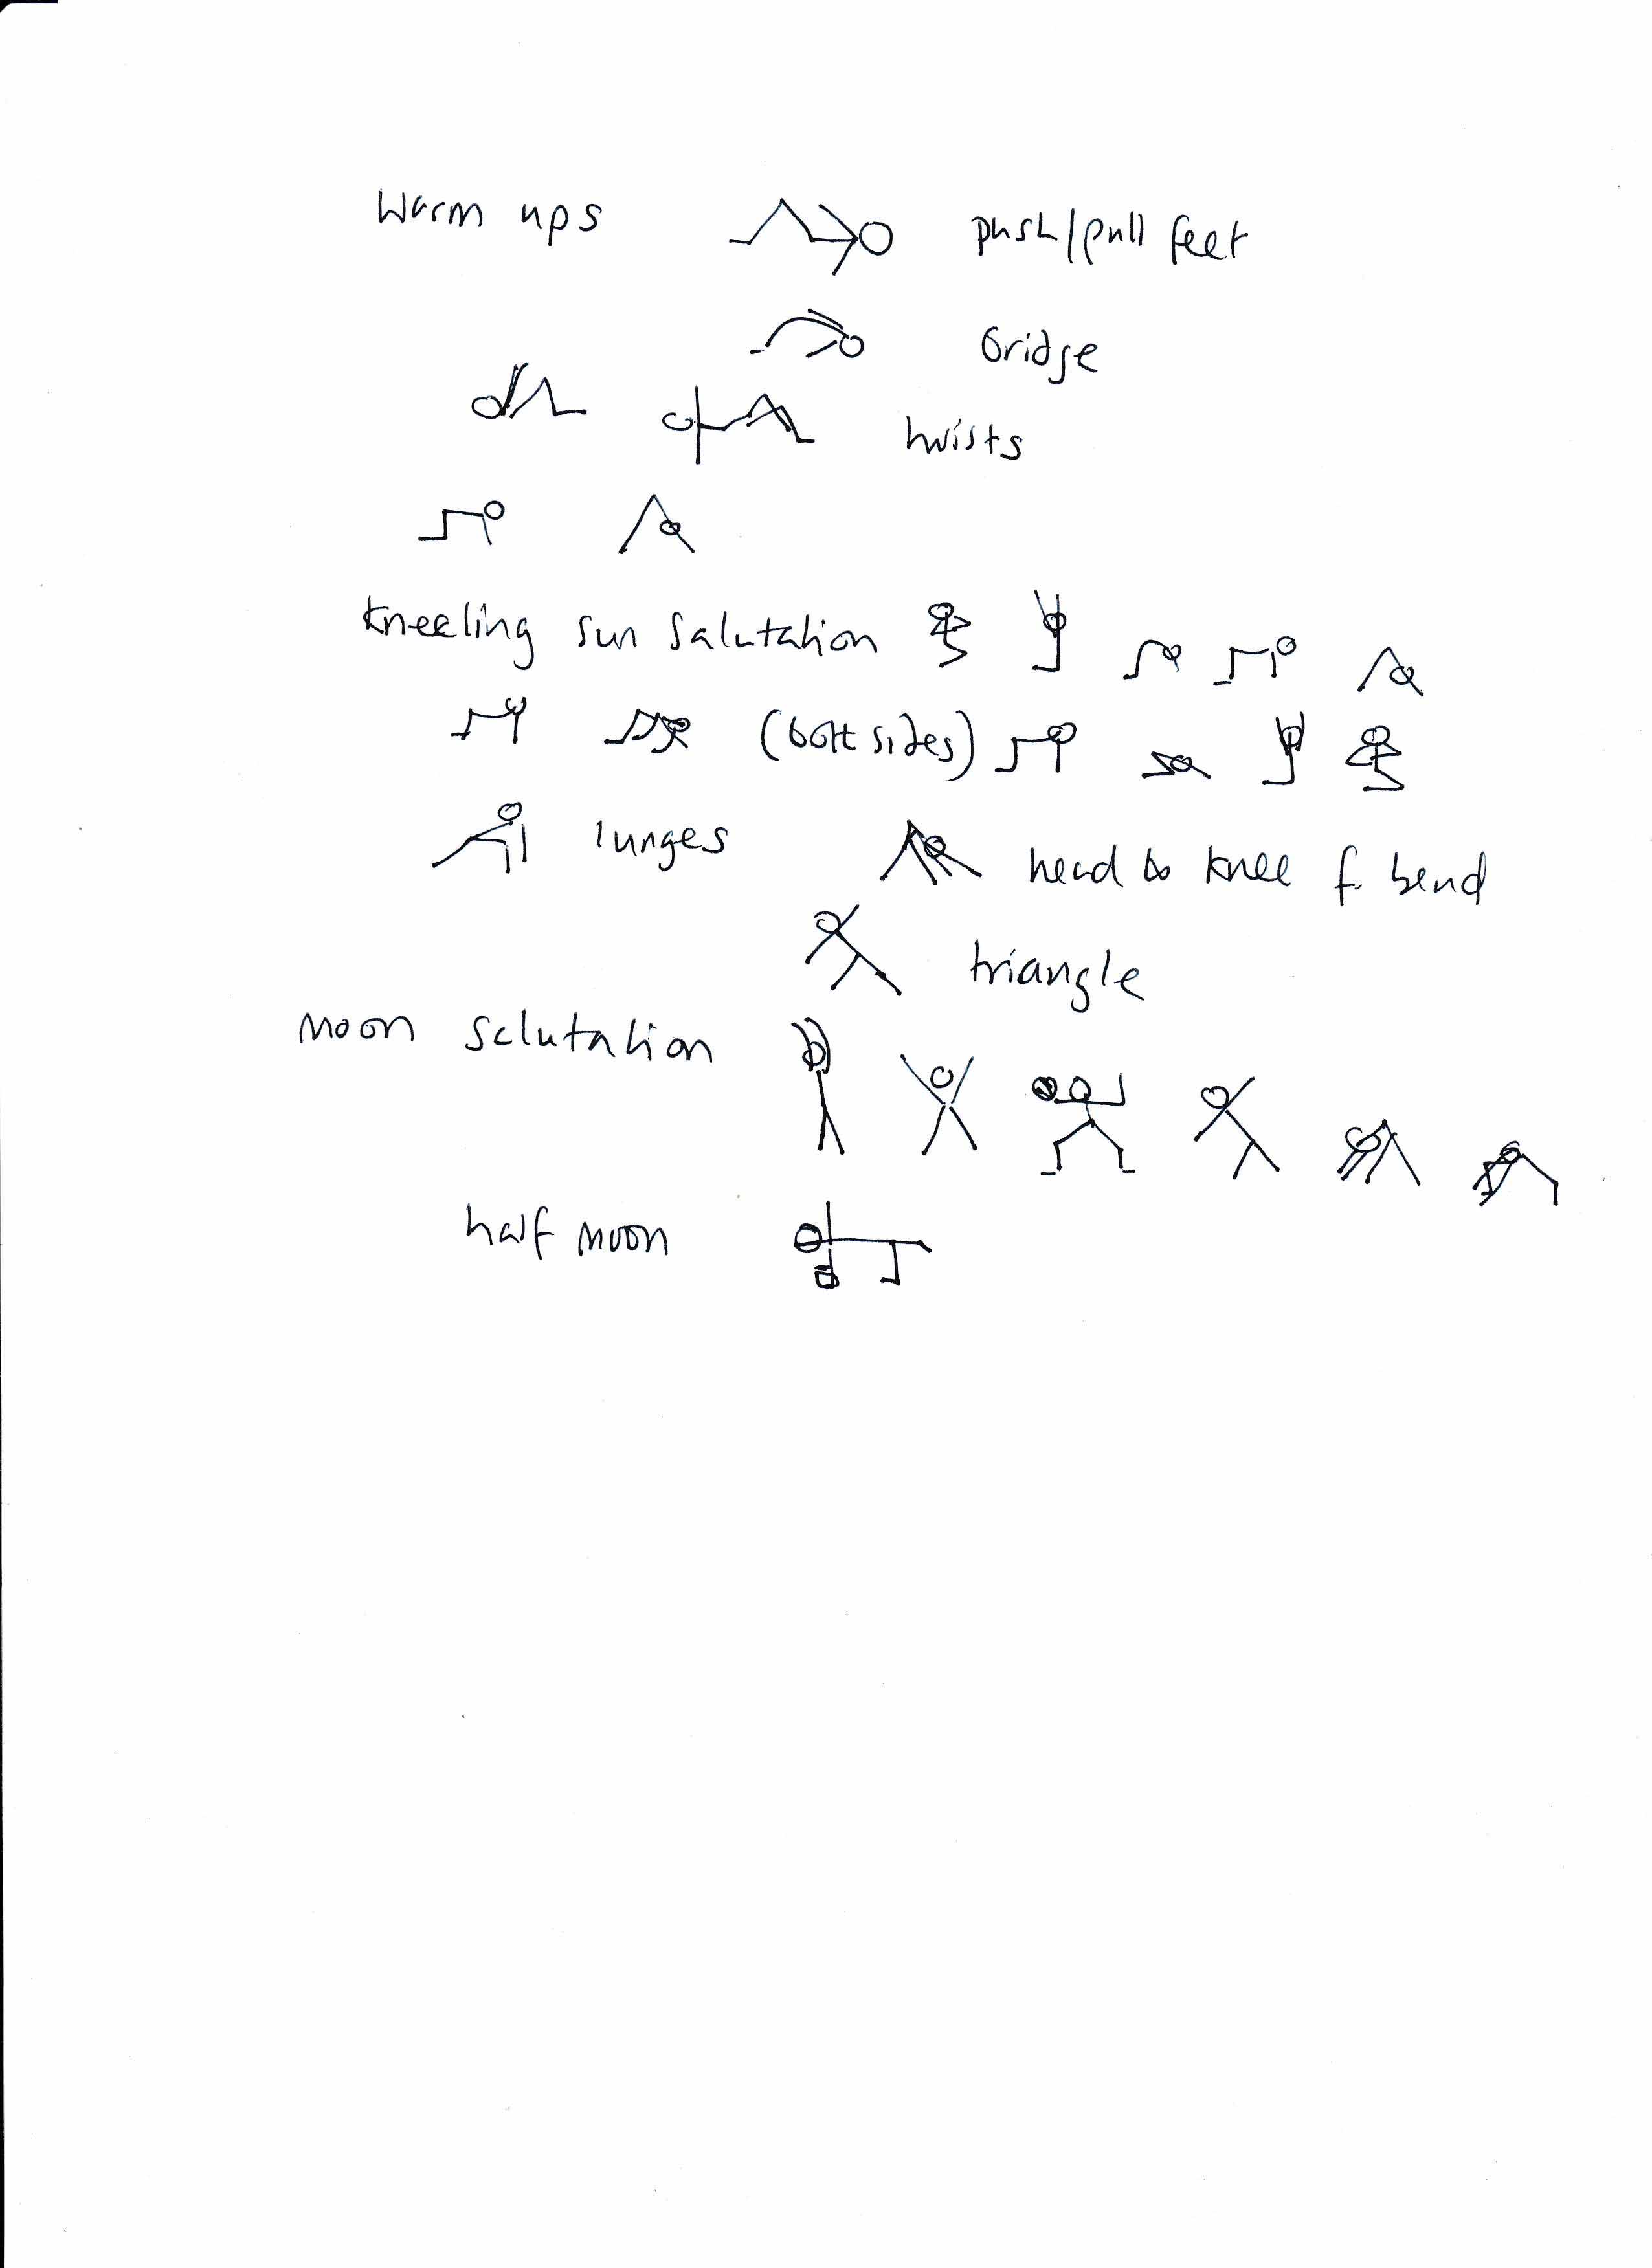 Warm ups push/pull feet
bridge
twists
kneeling sun salutation
(both sides)
lunges head to knee f. bend
triangle
moon salutation
half moon